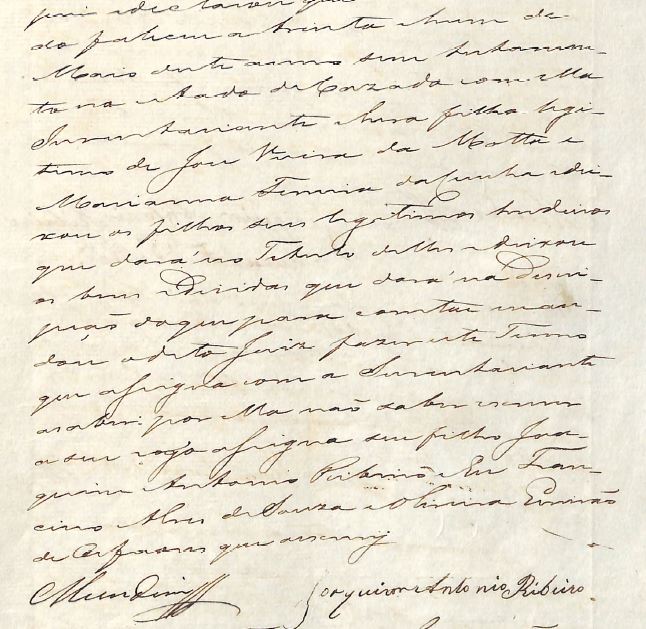 do faliceu a trinta e hum de
Maio deste anno sem testamen-
to no estado de Cazada com Ella
Inventariante e hera filha legi-
tima de Joze Vieira da Motta e
Marianna da Cunha e dei-
xou os filhos seus legitimos herdeiros
que dará no Titulo delles e deixou
os bens e Dividas que dará na Descri-
pção do que para constar man-
dou o dito Juiz fazer este Termo
que assigna com a Inventariante
e por Ella não saber escrever
a seu rogo assigna seu filho Joa-
quim Antonio Ribeiro e Eu Fran-
cisco Alves de Souza e Oliveira Escrivão
de Orfaons que escrevy
Joaquim Antonio Ribeiro